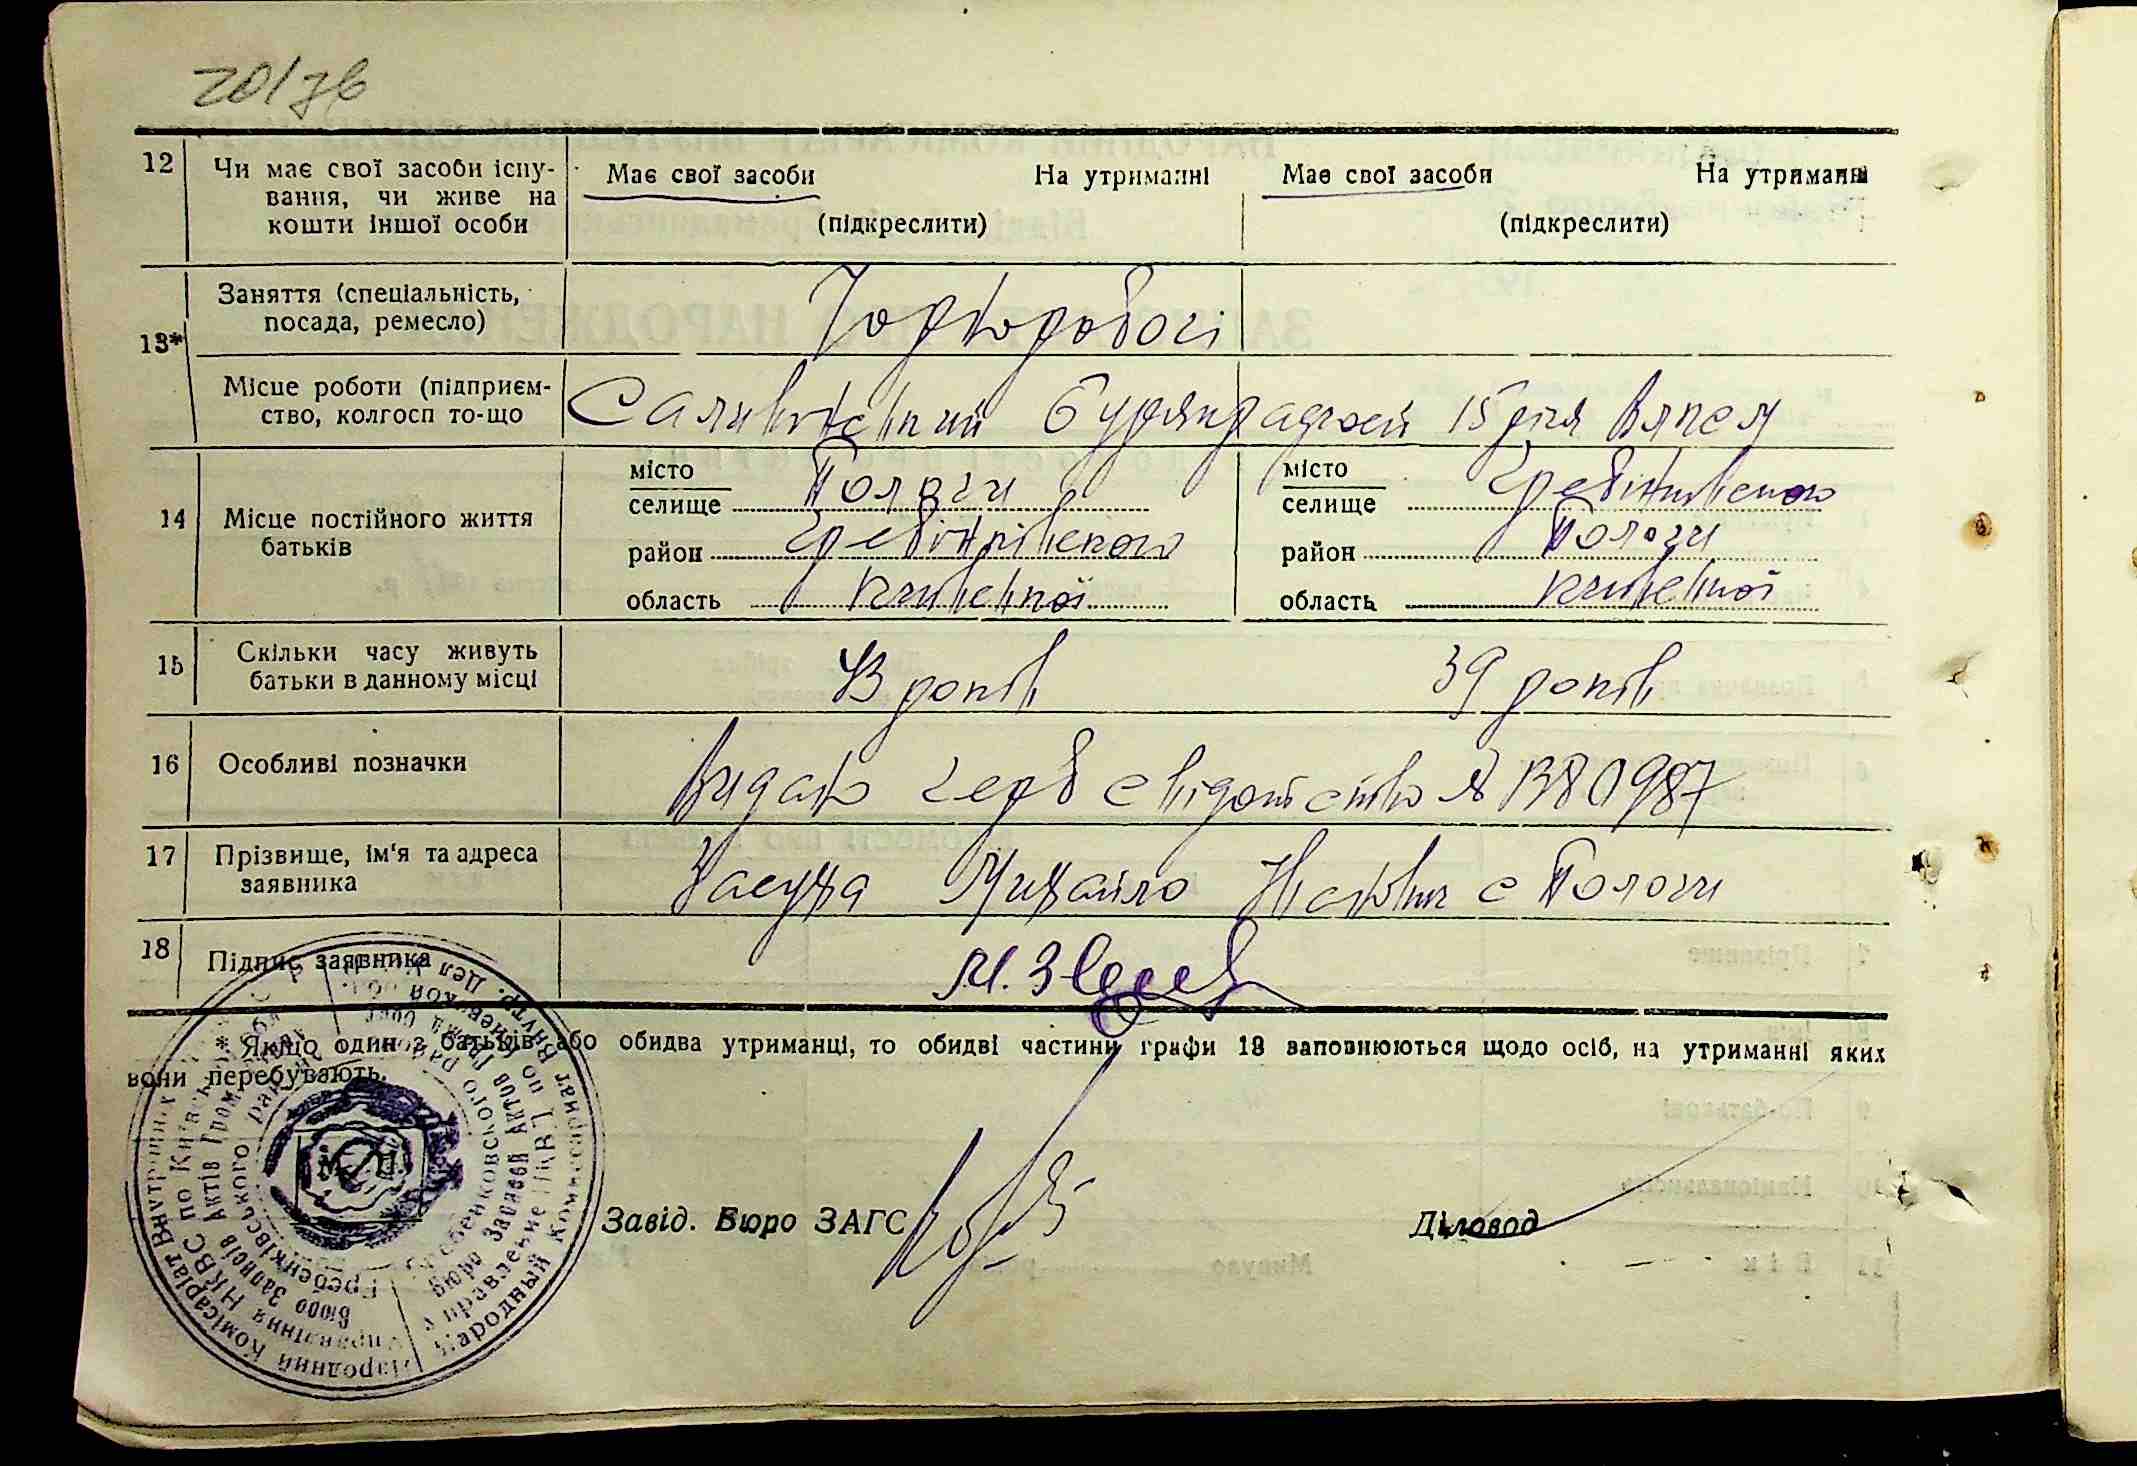 20/76
12 Чи має свої засоби існу-
вання, чи живе на
кошти іншої особи
Має свої засоби На утриманні Має свої засоби На утриманні
(підкреслити) (підкреслити)
13* Заняття (спеціальність,
посада, ремесло)
Чорноробочі
Місце роботи (підприєм-
ство, колгосп то-що
Саливінський бурякрадгосп
14 Місце постійного життя
батьків
місто
селище Пологи
район Гребінківського
область Київської
місто
селище Гребінківського
район Пологи
область Київської
15 Скільки часу живуть
батьки в данному місці
43 років 39 років
16 Особливі позначки
Видано герб свідотство № 1380987
17 Прізвище, ім'я та адреса
заявника
Михайло с Пологи
18 Підпис заявника
* Якщо один з батьків або обидва утриманці, то обидві частини графи 13 заповнюються щодо осіб, на утриманні яких
вони перебувають.
Завід. Бюро ЗАГС
Діловод
Народний Комісаріат Внутрішніх
Управління НКВС по Київськ
Бюро Записів Актів Громад
Гребенківського
Народный Комиссариат Внутр. Дел
Управление НКВД по Киевской обл.
Бюро Записей Актов
Гребенковского района